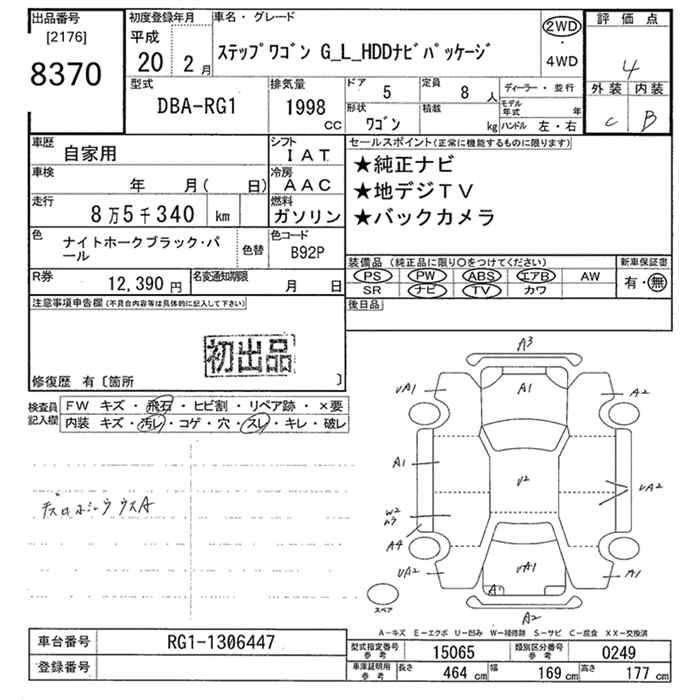 出品番号
[2176]
8370
初度登録年月
平成
20 2月
車名・グレード
ステップワゴン G_L_HDDナビパッケージ
2WD
・
4WD
評価点
4
外装 内装
C B
型式
DBA-RG1
排気量
1998
CC
ドア
5
定員
8人
ディーラー・並行
形状
ワゴン
積載
kg
モデル年式 年
ハンドル 左・右
車歴
自家用
シフト
IAT
車検
年 月( 日)
冷房
AAC
走行
8万5千340 km
燃料
ガソリン
色
ナイトホークブラック・パール
色替
色コード
B92P
R券
12,390円
名変通知期限
月 日
セールスポイント(正常に機能するものに限ります)
★純正ナビ
★地デジTV
★バックカメラ
装備品 (純正品に限り○をつけてください)
PS PW ABS エアB AW
SR ナビ TV カワ
新車保証書
有・無
後日品
注意事項申告欄(不具合内容等は具体的に記入して下さい)
初出品
修復歴 有〔箇所 〕
検査員記入欄
FW キズ・飛石・ヒビ割・リペア跡・×要
内装 キズ・汚レ・コゲ・穴・スレ・キレ・破レ
A3
UA1
A1
A2
A1
V2
UA2
W2
A4
UA2
UA1
A1
A2
スペア
A-キズ E-エクボ U-凹み W-補修跡 S-サビ C-腐食 XX-交換済
車台番号
RG1-1306447
登録番号
型式指定番号
参考
15065
類別区分番号
参考
0249
車庫証明用
参考
長さ 464 cm 幅 169 cm 高さ 177 cm